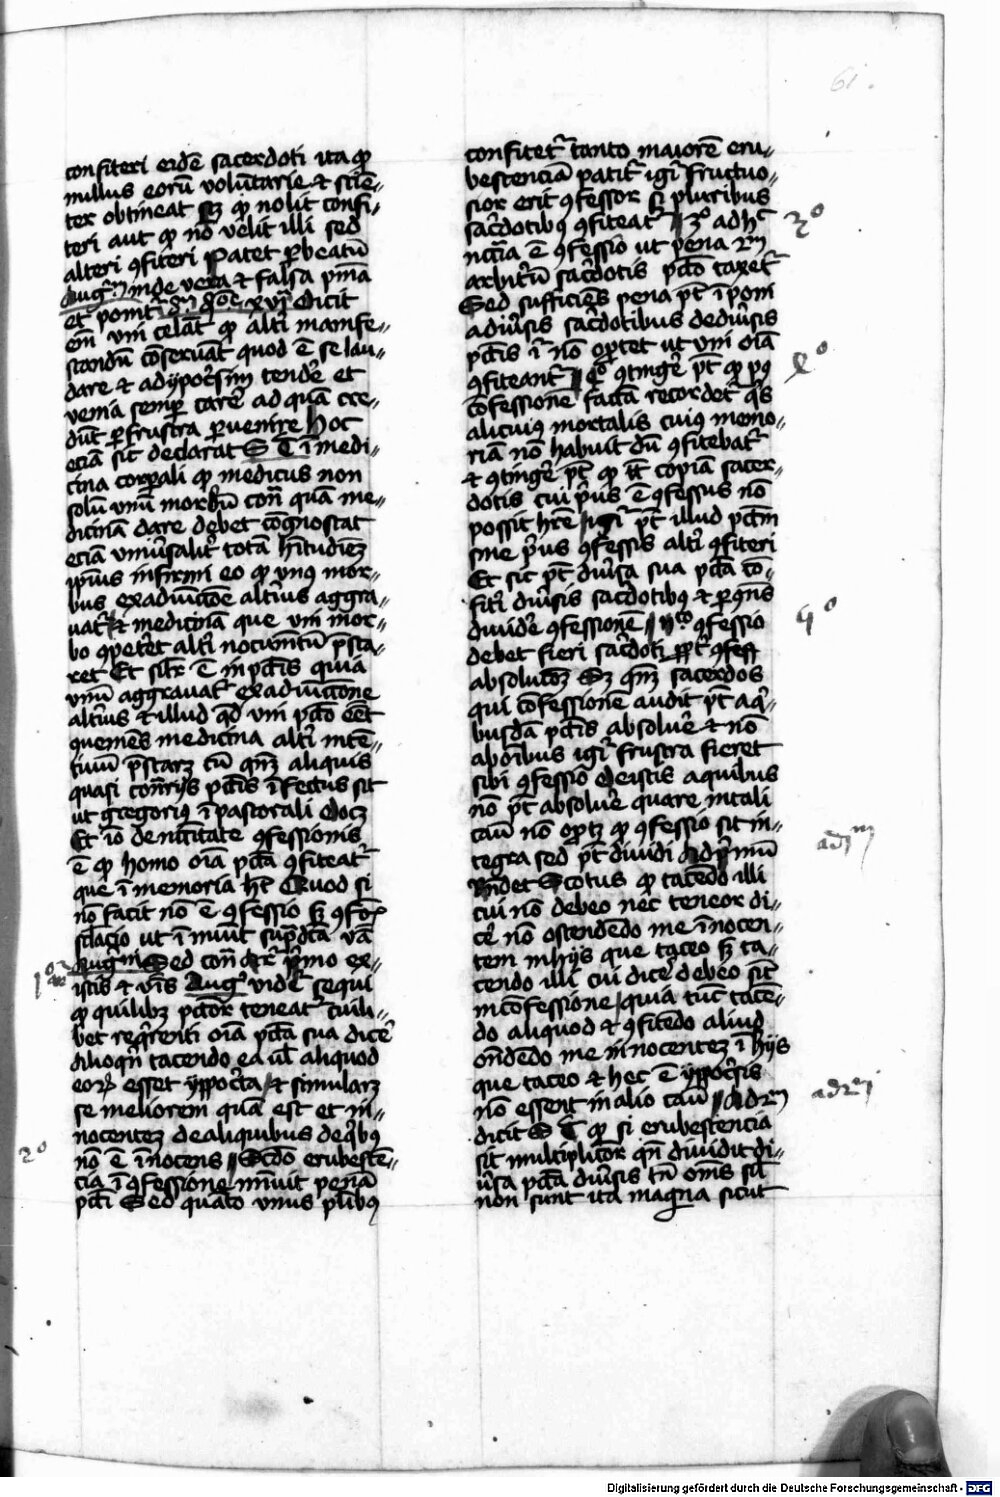 61.
confiteri eidē sacerdoti ita qp
nullus eorū voluntarie et scien-
ter obtineat sz qp nolit confi-
teri aut qp nō velit illi sed
alteri ꝯfiteri Patet per beatū
Aug. inde vera et falsa pnia
et ponit xvi Dicit
em̄ uni celāt qp alt̓i manife-
standū cōseruāt quod ē se lau-
dare et ad ypoc̓sim tend̓e et
venia semper care̓ ad quā cre-
dūt per frustra peruenire hoc
eciā sic declarat S T ī medi-
cina corporali qp medicus non
solū unū morbū cōn̄ quā me-
dicinā dare debet cōgnoscat
eciā univ̓salit̓ totā h̄itudinez
ip̄ius infirmi eo qp unꝰ mor-
bus ex adiūccōe alterius aggra-
uat̓ et medicinā que uni mor-
bo ꝯpetēt alt̓i nocumētū p̄sta-
ret Et sil̓r ē in pc̄c̄is quia
unū aggrauat̓ ex adiunccione
alt̓ius et illud qd uni pc̄c̄o eēt
quemēs medicina alt̓i incē-
tiuū p̄staret cū qn̄z aliquis
quasi cōn̄rijs pc̄c̄is īfectus sit
ut gregoriꝰ ī pastorali docz
Et iō de nēcitate ꝯfessionis
ē qp homo oīa pc̄c̄a ꝯfiteat̓
que ī memoria h̄t Quod si
nō facit nō ē ꝯfessio sz
ut ī nuūt sup̄dc̄a
Augni Sed cōn̄ ar̓ p̓mo ex
istis et v̄bis Aug̓ vide̓ sequi
qp quilibz pc̄c̄or teneat̓ cuili-
bet req̓renti oīa pc̄c̄a sua dice̓
alioqn̄ tacendo ea ūl aliquod
eorꝝ esset ypoc̓ta et simularz
se meliorem quā est et in-
nocentez de aliquibus de q̓bꝰ
nō ē īnocens Scd̄o erubescē-
cia ī ꝯfessione mīnuit penā
pc̄c̄i Sed quāto unus pl̓ibꝰ
1o
2o
confitet̓ tanto maiorē eru-
bescenciā patit̓ igi̓ fructuo-
sior erit ꝯfessor si pluribus
sac̓dotibꝰ ꝯfiteat̓ 3o adhc
nc̄c̄ia ē ꝯfessio ut pena
arbitriū sac̓dotis pc̄c̄o taxet̓
Sed sufficiēs pena p̄t īponi
a diu̓sis sac̓dotibus de diu̓sis
pc̄c̄is i̓ nō oportet ut uni oīa
ꝯfiteant̓ 4o ꝯting̓e p̄t qp pꝰ
cōfessione factā recordet̓ q̓s
alicuiꝰ mortalis cuiꝰ memo-
riā nō habuit dū ꝯfitebat̓
et ꝯting̓e p̄t qp copiā sacer-
dotis cui p̓us ē ꝯfessus nō
possit hr̄e igi̓ p̄t illud pc̄c̄m
sine p̓us ꝯfessis alt̓i ꝯfiteri
Et sic p̄t diu̓sa sua pc̄c̄a cō-
fit̓i diu̓sis sac̓dotibꝰ et per ꝯn̄s
diuid̓e ꝯfessionē 5to ꝯfessio
debet fieri sac̓doti ꝯfess
absolucōz Sz qn̄z sacerdos
qui cōfessionē audit p̄t a q̓-
busdā pc̄c̄is absolue̓ et nō
ab oībus igi̓ frustra fieret
sibi ꝯfessio de istis a quibus
nō p̄t absolue̓ quare in tali
cāu nō oportz qp ꝯfessio sit in-
tegra sed p̄t diuidi Ad p̓mū
Rn̄det Scotus qp tacēdo illi
cui nō debeo nec teneor di-
ce̓ nō ostendendo me īnocen-
tem in hijs que taceo sz ta-
cendo illi cui dice̓ debeo sic̄
in confessione quia tūc tacē-
do aliquod et ꝯfitēdo aliud
on̄dēdo me innocentez ī hijs
que taceo et hec ē ypoc̓sis
nō essent in alio cāu Ad 2m
dicit S T qp si erubescencia
sit multiplicior qn̄ diuidit di-
u̓sa pc̄c̄a diu̓sis tn̄ oīns sil̓
non sunt ita magna sicut
3o
4o
5o
ad 1m
ad 2m
Digitalisierung gefördert durch die Deutsche Forschungsgemeinschaft - DFG